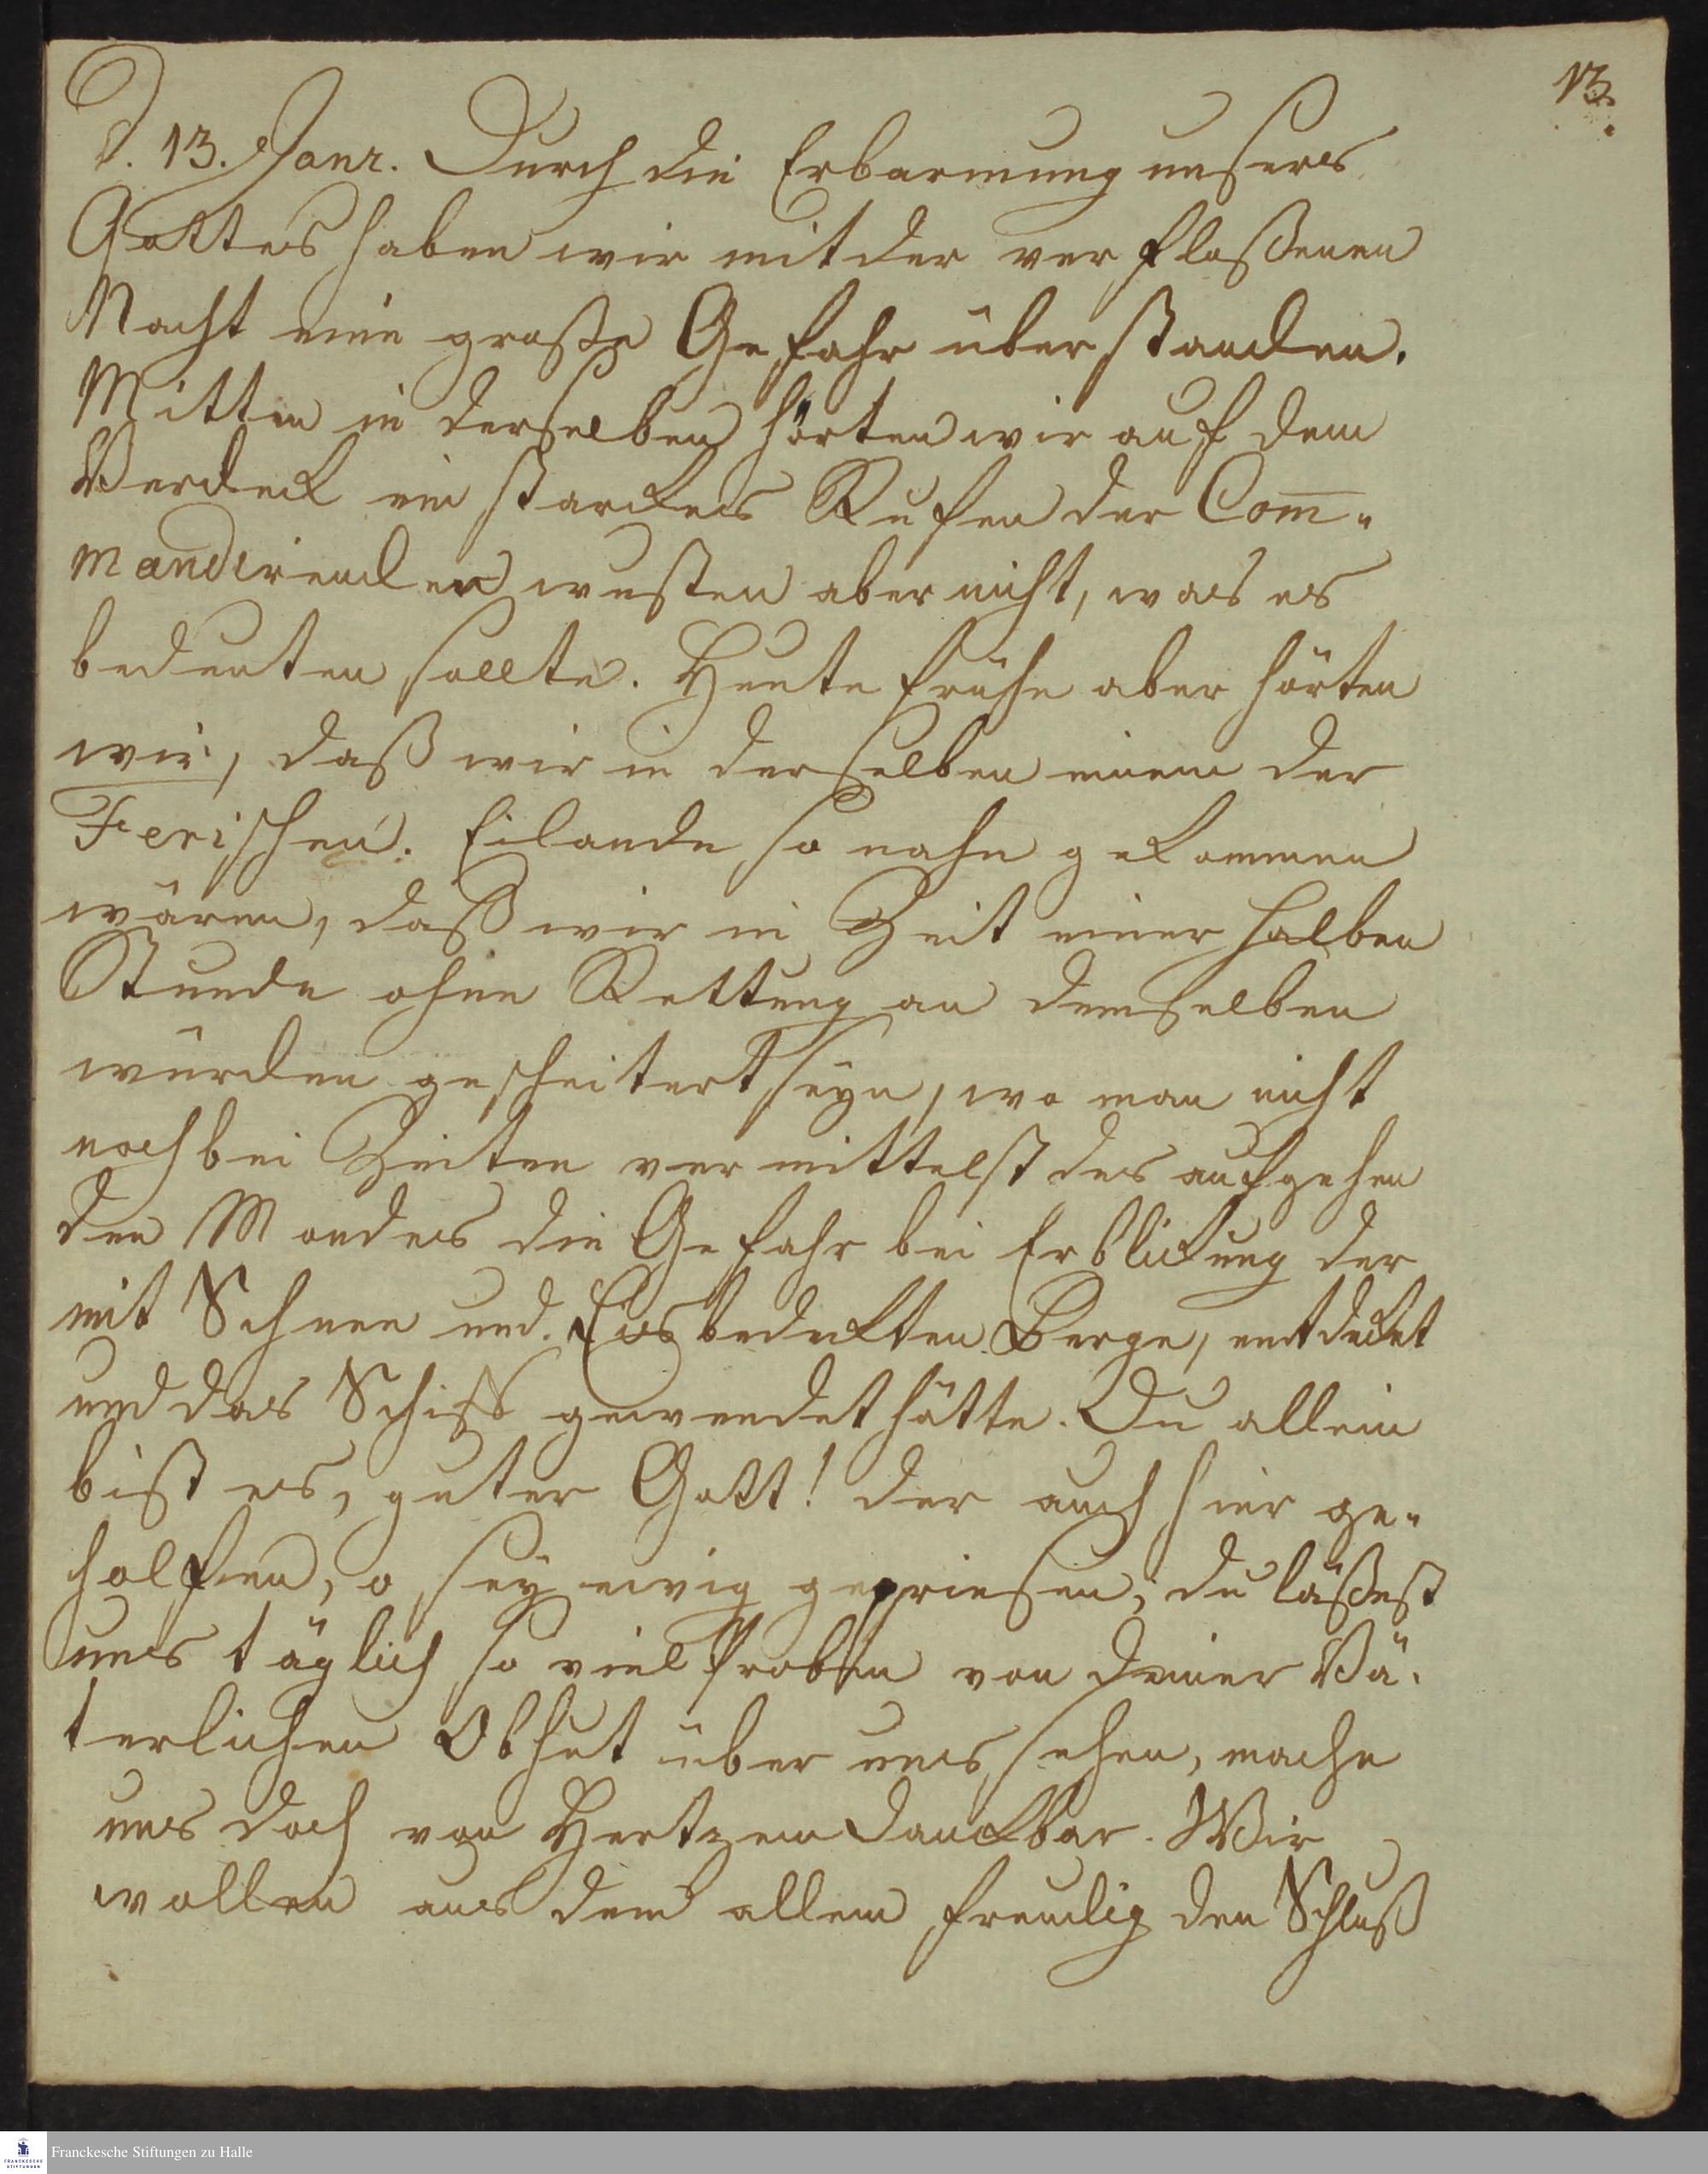 13.
d. 13. Janr. Durch die Erbarmung unsers
Gottes haben wir mit der verfloßenen
Nacht eine große Gefahr überstanden.
Mitten in derselben hörten wir auf dem
Verdeck ein starckes Rufen der Com̅-
mandirenden wusten aber nicht, was es
bedeuten sollte. Heute frühe aber hörten
wir, daß wir in derselben einem der
Ferischen. Eilande so nahe gekommen
wären, daß wir in Zeit einer halben
Stunde ohne Rettung an demselben
würden gescheitert seyn, wo man nicht
noch bei Zeiten vermittelst des aufgehen
den Mondes die Gefahr bei Erblickung der
mit Schnee und Eis bedeckten Berge, entdecket
und das Schiff gewendet hätte. Du allein
bist es, guter Gott! der auch hier ge-
holfen, o sey ewig gepriesen, du läßest
uns täglich so viel Proben von deiner Vä-
terlichen Obhut über uns sehen, mache
uns doch von Hertzen danckbar. Wir
wollen aus dem allem freudig den Schluß
Franckesche Stiftungen zu Halle
FRANCKESCHE
STIFTUNGEN